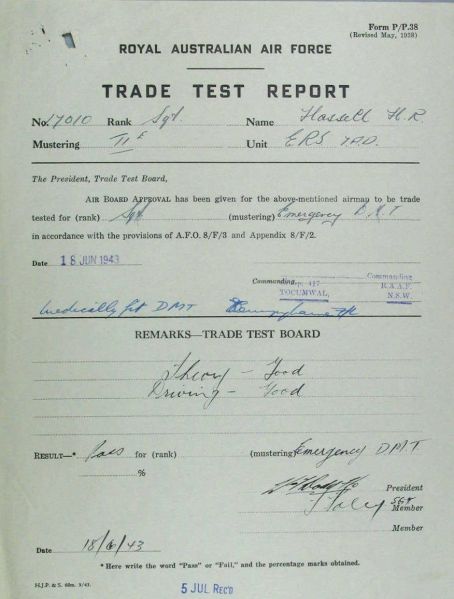 Form P/P.38
(Revised May, 1938)
ROYAL AUSTRALIAN AIR FORCE
TRADE TEST REPORT
No. 17010 Rank Sgt. Name Hassell H.R.
Mustering Unit ERS
The President, Trade Test Board,
AIR BOARD APPROVAL has been given for the above-mentioned airman to be trade
tested for (rank) Sgt (mustering) Emergency D.M.T
in accordance with the provisions of A.F.O. 8/F/3 and Appendix 8/F/2.
Date 18 JUN 1943
Commanding,
TOCUMWAL,
Commanding
R.A.A.F.
N.S.W.
Medically fit DMT
REMARKS—TRADE TEST BOARD
Theory - Good
Driving - Good
RESULT—* Pass for (rank) (mustering) Emergency DMT
%
President
Sgt Member
Member
Date 18/6/43
* Here write the word "Pass" or "Fail," and the percentage marks obtained.
H.J.P. & S. 60m. 3/43.
5 JUL REC'D